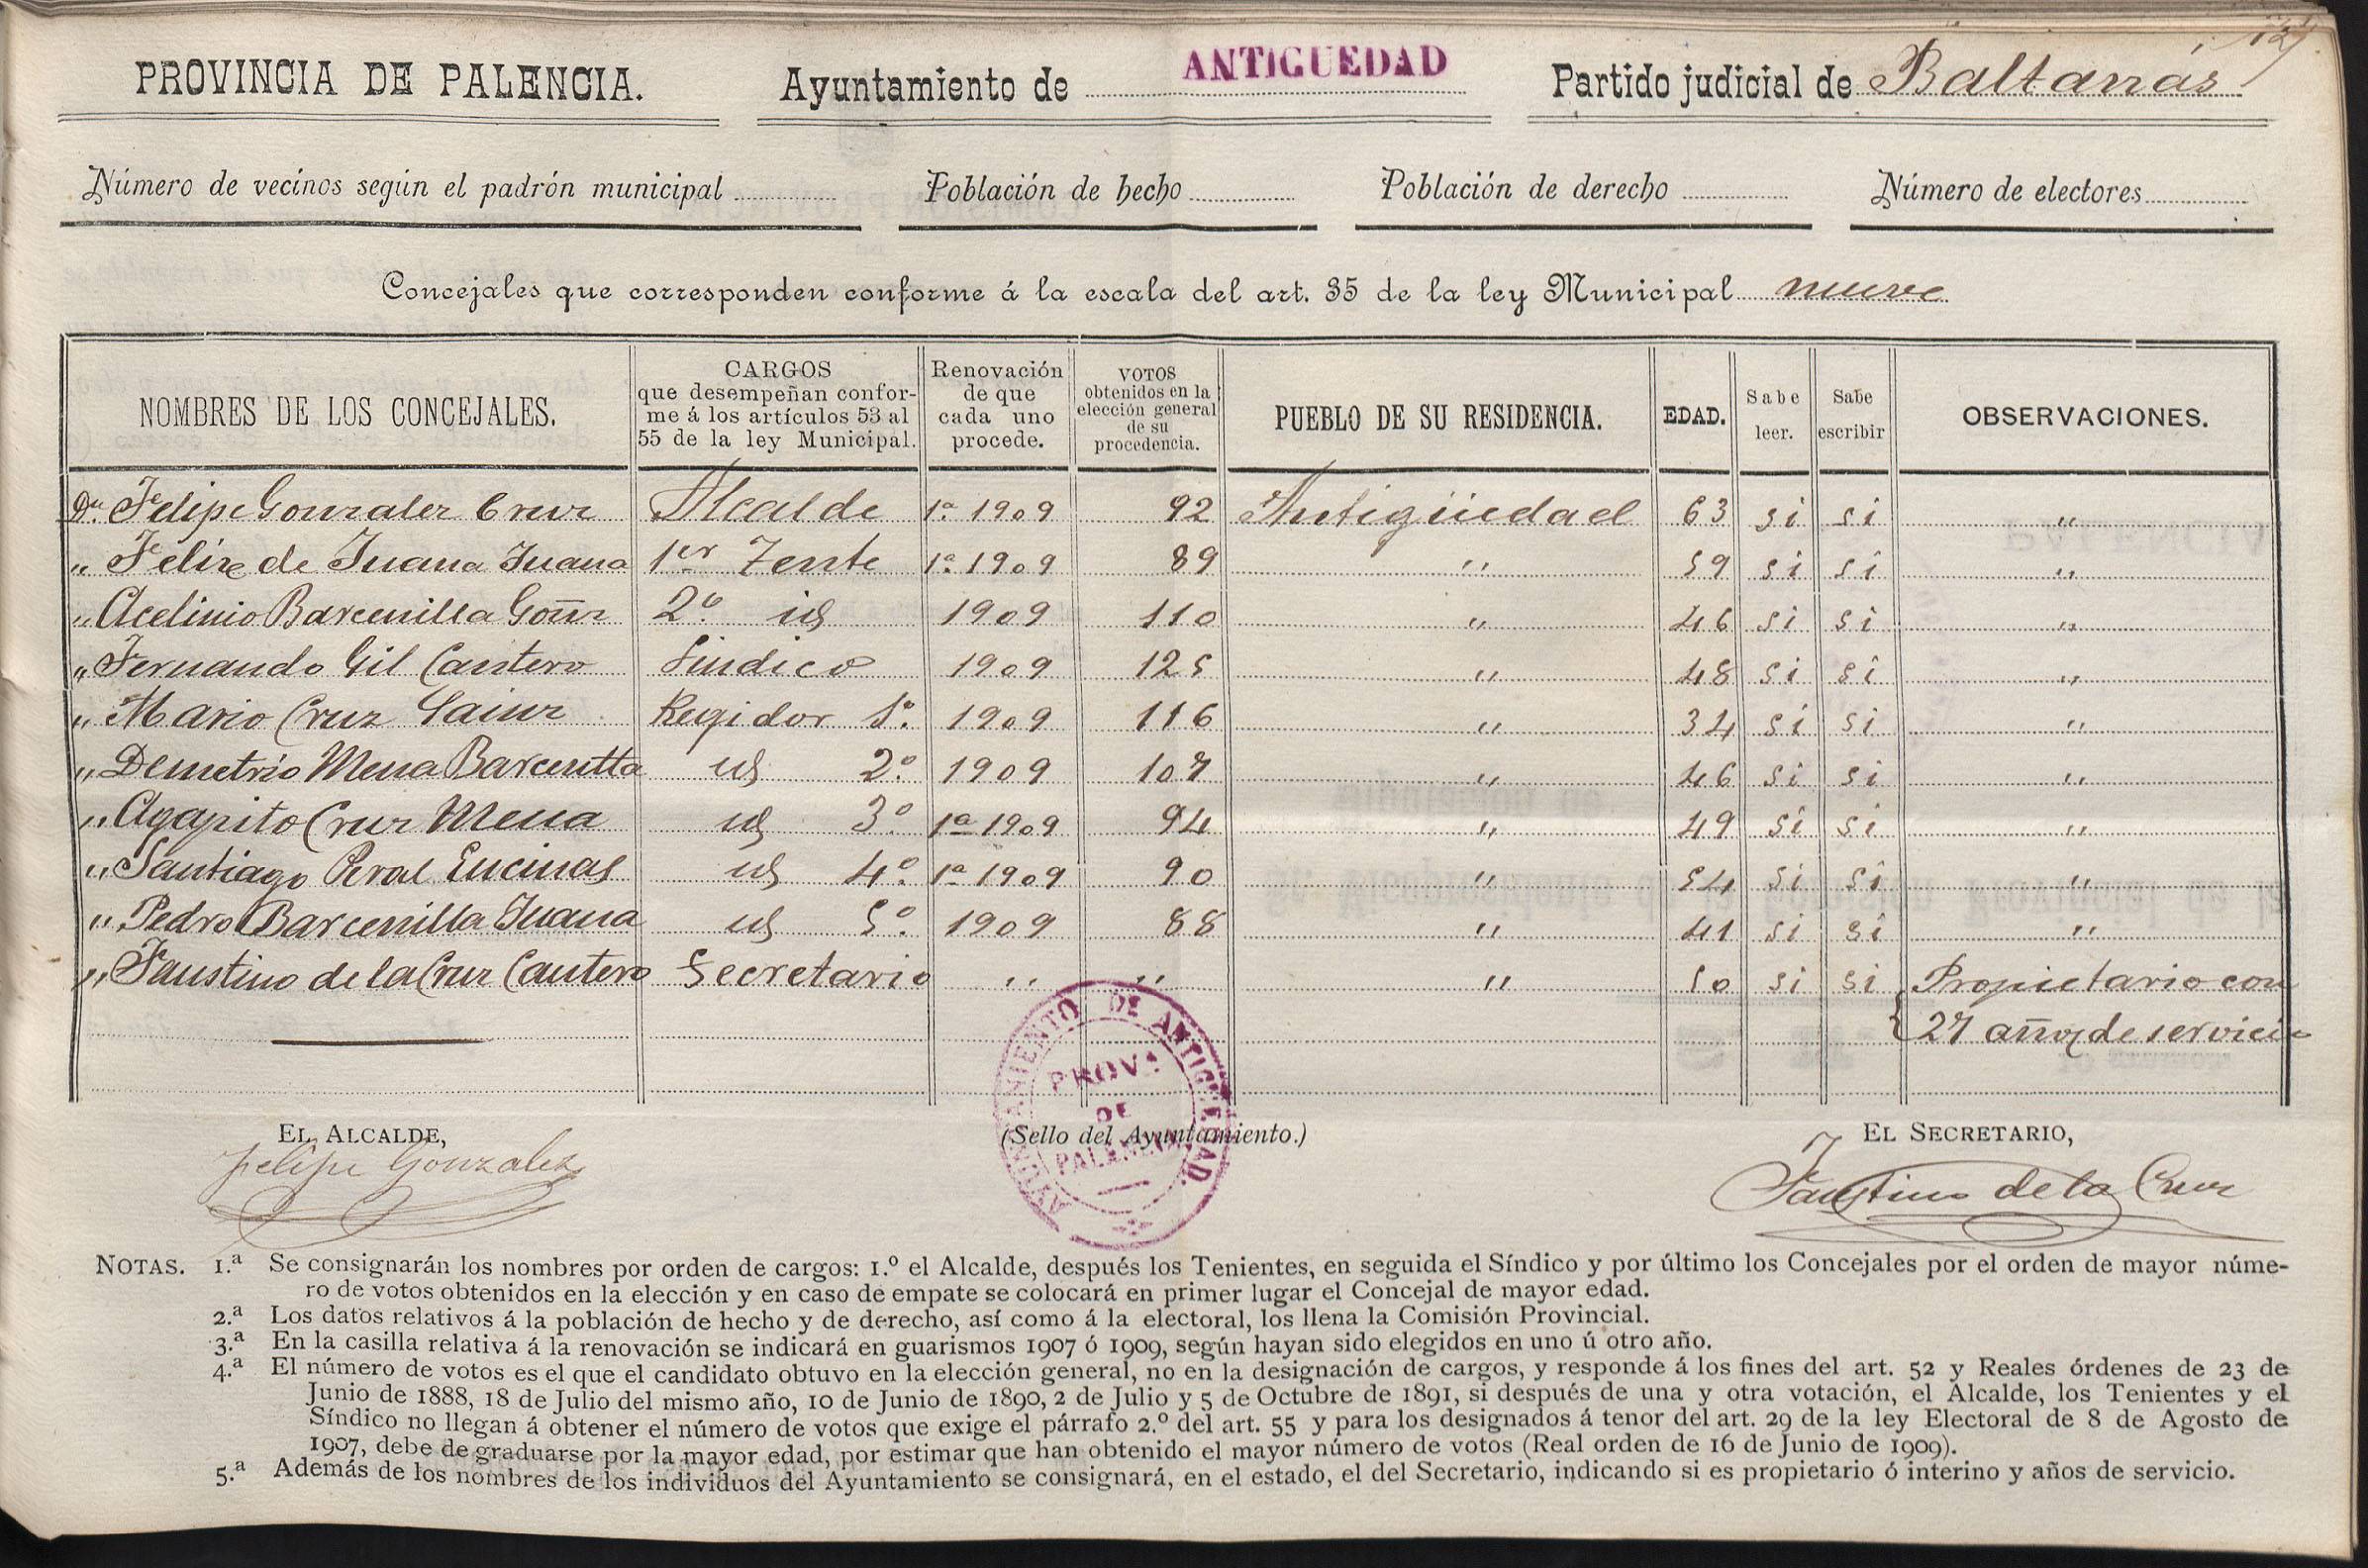 127
PROVINCIA DE PALENCIA. Ayuntamiento de ANTIGUEDAD Partido judicial de Baltanás
Número de vecinos según el padrón municipal Población de hecho Población de derecho Número de electores
Concejales que corresponden conforme á la escala del art. 35 de la ley Municipal nueve
NOMBRES DE LOS CONCEJALES.
CARGOS
que desempeñan confor-
me á los artículos 53 al
55 de la ley Municipal.
Renovación
de que
cada uno
procede.
VOTOS
obtenidos en la
elección general
de su
procedencia.
PUEBLO DE SU RESIDENCIA.
EDAD.
Sabe
leer.
Sabe
escribir
OBSERVACIONES.
Dn. Felipe Gonzalez Cruz Alcalde 1ª 1909 92 Antigüedad 63 si si "
" Felix de Juana Juana 1er Tente 1ª 1909 89 " 59 si si "
" Acelinio Barcenilla Goñz 2º id 1909 110 " 46 si si "
" Fernando Gil Cantero Sindico 1909 125 " 48 si si "
" Mario Cruz Sainz Regidor 1º 1909 116 " 34 si si "
" Demetrio Mena Barcenilla id 2º 1909 107 " 46 si si "
" Agapito Cruz Mena id 3º 1ª 1909 94 " 49 si si "
" Santiago Peral Encinas id 4º 1ª 1909 90 " 54 si si "
" Pedro Barcenilla Juana id 5º 1909 88 " 41 si si "
" Faustino de la Cruz Cantero Secretario " " " 50 si si Propietario con
27 años de servicio
AYUNTAMIENTO DE ANTIGUEDAD.
PROVª
DE
PALENCIA
EL ALCALDE, (Sello del Ayuntamiento.) EL SECRETARIO,
Felipe Gonzalez Faustino de la Cruz
NOTAS. 1.ª Se consignarán los nombres por orden de cargos: 1.º el Alcalde, después los Tenientes, en seguida el Síndico y por último los Concejales por el orden de mayor núme-
ro de votos obtenidos en la elección y en caso de empate se colocará en primer lugar el Concejal de mayor edad.
2.ª Los datos relativos á la población de hecho y de derecho, así como á la electoral, los llena la Comisión Provincial.
3.ª En la casilla relativa á la renovación se indicará en guarismos 1907 ó 1909, según hayan sido elegidos en uno ú otro año.
4.ª El número de votos es el que el candidato obtuvo en la elección general, no en la designación de cargos, y responde á los fines del art. 52 y Reales órdenes de 23 de
Junio de 1888, 18 de Julio del mismo año, 10 de Junio de 1890, 2 de Julio y 5 de Octubre de 1891, si después de una y otra votación, el Alcalde, los Tenientes y el
Síndico no llegan á obtener el número de votos que exige el párrafo 2.º del art. 55 y para los designados á tenor del art. 29 de la ley Electoral de 8 de Agosto de
1907, debe de graduarse por la mayor edad, por estimar que han obtenido el mayor número de votos (Real orden de 16 de Junio de 1909).
5.ª Además de los nombres de los individuos del Ayuntamiento se consignará, en el estado, el del Secretario, indicando si es propietario ó interino y años de servicio.